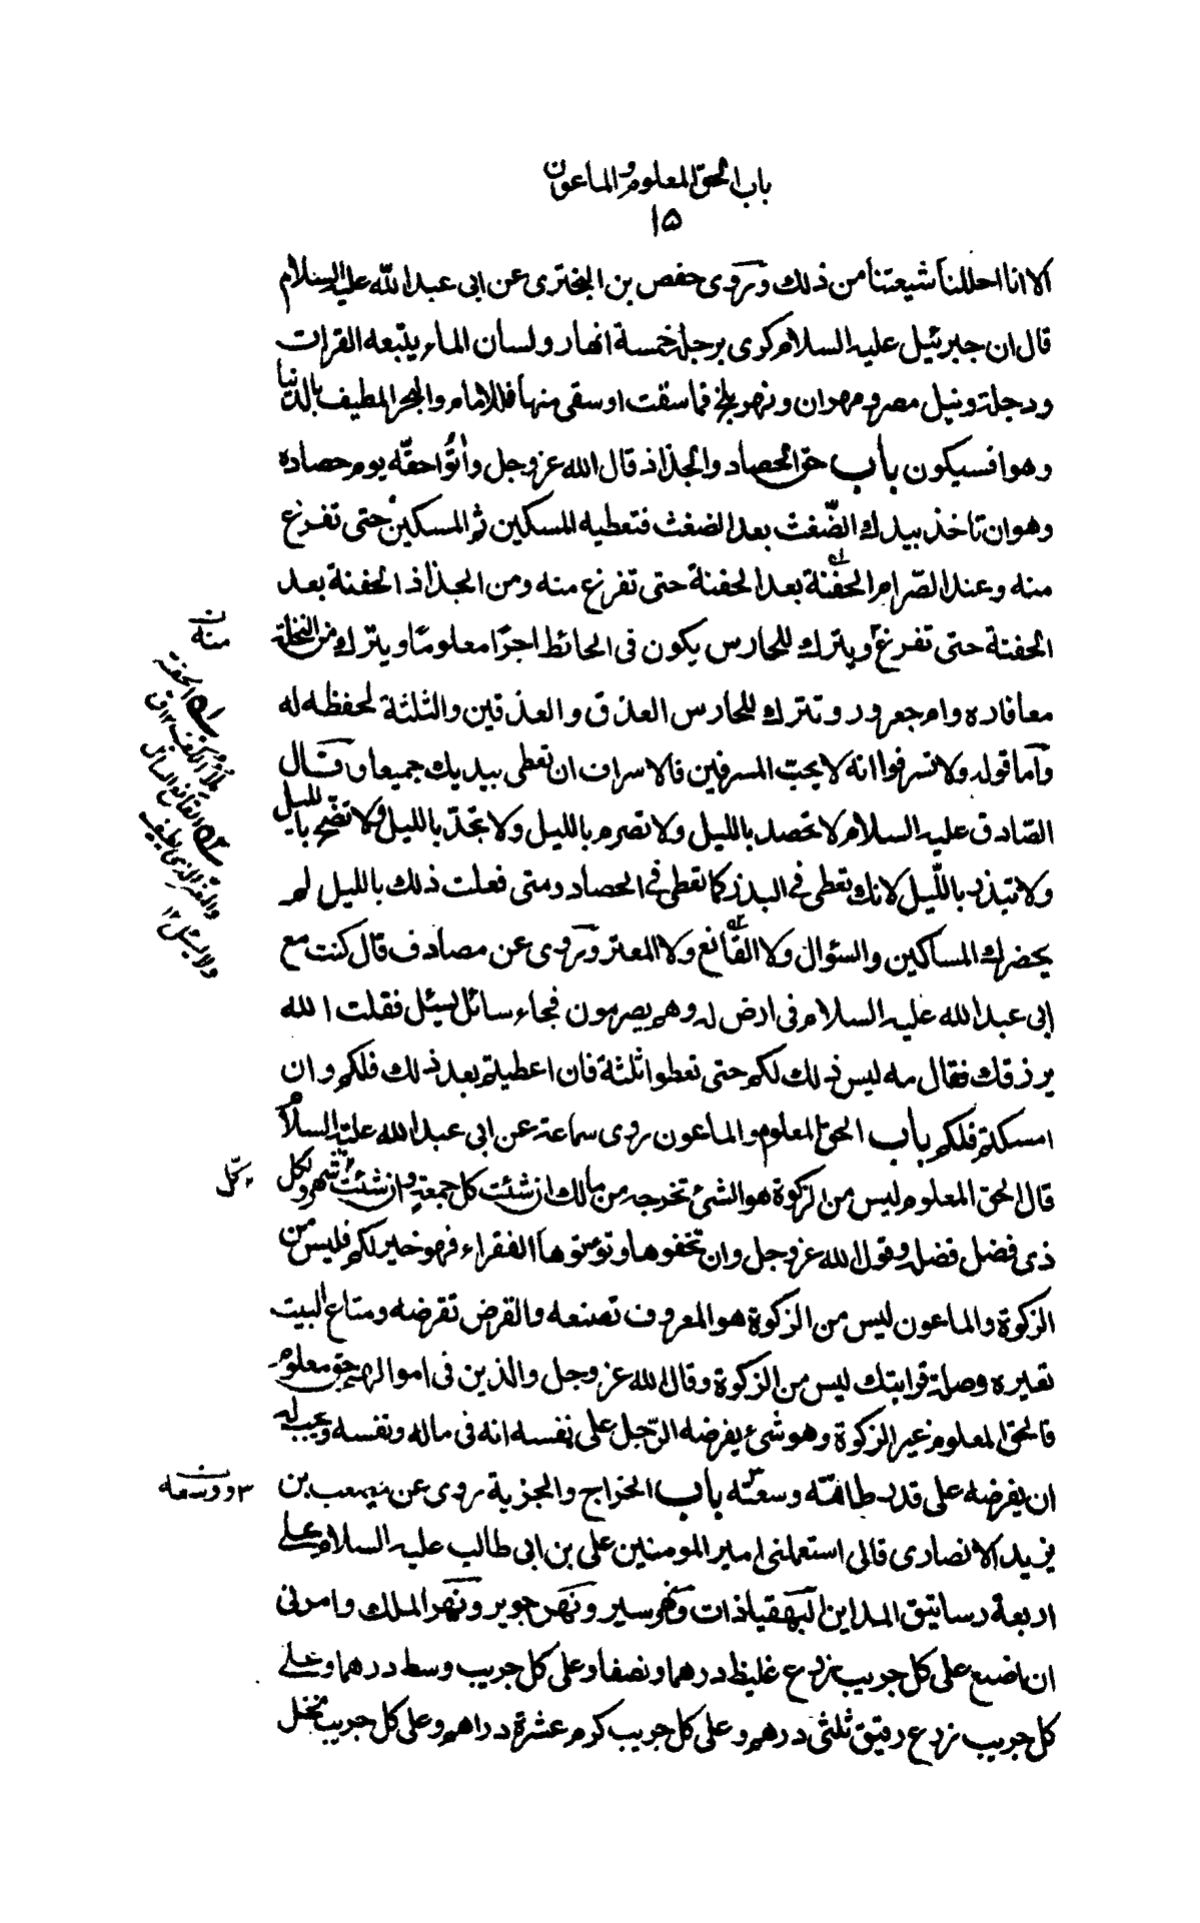 باب الحق المعلوم والماعون
١٥
الا انا احللنا شيعتنا من ذلك وروى حفص بن البخترى عن ابى عبد الله عليه السلام
قال ان جبرئيل عليه السلام كرى برجله خمسة انهار ولسان الماء يتبعه الفرات
ودجلة ونيل مصر ومهران ونهر بلخ فما سقت او سقى منها فللامام والبحر المطيف بالدنيا
وهو افسيكون باب حق الحصاد والجذاذ قال الله عز وجل وآتوا حقه يوم حصاده
وهو ان تاخذ بيدك الضّغث بعد الضغث فتعطيه المسكين ثم المسكين حتى تفرغ
منه وعند الصّرام الحفنة بعد الحفنة حتى تفرغ منه ومن الجذاذ الحفنة بعد
الحفنة حتى تفرغ ويترك للحارس يكون فى الحائط اجرًا معلومًا ويترك من النخلة
معافاره وام جعرور وتترك للحارس العذق والعذقين والثلثة لحفظه له
وأما قوله ولا تسرفوا انه لا يحبّ المسرفين فالاسراف ان تعطى بيديك جميعا وقال
الصّادق عليه السلام لا تحصد بالليل ولا تصرم بالليل ولا تجذّ بالليل ولا تضحّ بالليل
ولا تبذر باللّيل لانك تعطى فى البذر كما تعطى فى الحصاد ومتى فعلت ذلك بالليل لم
يحضرك المساكين والسؤال ولا القانع ولا المعتر وروى عن مصادف قال كنت مع
ابى عبد الله عليه السلام فى ارض له وهم يصرمون فجاء سائل يسئل فقلت الله
يرزقك فقال مه ليس ذلك لكم حتى تعطوا ثلثة فان اعطيتم بعد ذلك فلكم وان
امسكتم فلكم باب الحق المعلوم والماعون روى سماعة عن ابى عبد الله عليه السلام
قال الحق المعلوم ليس من الزكوة هو الشئ تخرجه من مالك ان شئت كل جمعة وان شئت كل شهر ولكل
ذى فضل فضله وقول الله عز وجل وان تخفوها وتؤتوها الفقراء فهو خير لكم فليس من
الزكوة والماعون ليس من الزكوة هو المعروف تصنعه والقرض تقرضه ومتاع البيت
تعيره وصلة قرابتك ليس من الزكوة وقال الله عز وجل والذين فى اموالهم حق معلوم
فالحق المعلوم غير الزكوة وهو شئ يفرضه الرّجل على نفسه انه فى ماله ونفسه ويجب له
ان يفرضه على قدر طاقته وسعته باب الخراج والجزية روى عن مصعب بن
يزيد الانصارى قال استعملنى امير المومنين على بن ابى طالب عليه السلام على
اربعة رساتيق المداين البهقياذات ونهر سير ونهر جوير ونهر الملك وامرنى
ان اضع على كل جريب زرع غليظ درهما ونصفا وعلى كل جريب وسط درهما وعلى
كل جريب زرع رقيق ثلثى درهم وعلى كل جريب كرم عشرة دراهم وعلى كل جريب نخل
منه ن
له الحفنة
ملأ الكف ١٢ ق
له القانع السائل
والمعتر الذى يطيف
ولا يسئل ١٢
٢ كلّ
٣ ووسعه